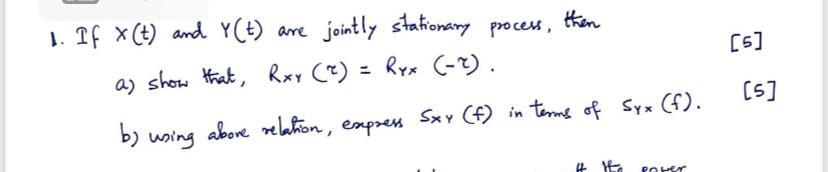 1. If X(t) and Y(t) are jointly stationary process, then
[5]
a) show that, RXY (τ) = RYX (-τ).
b) using above relation, express SXY (f) in terms of SYX (f). [5]
the power